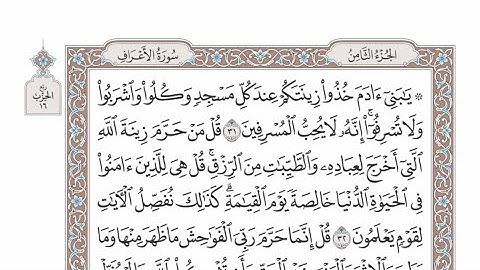 سُورَةُ الأَعْرَافِ
الجُزْءُ الثَّامِنُ
ربع
الحزب
١٦
۞ يَٰبَنِيٓ ءَادَمَ خُذُوا۟ زِينَتَكُمْ عِندَ كُلِّ مَسْجِدٍ وَكُلُوا۟ وَٱشْرَبُوا۟
وَلَا تُسْرِفُوٓا۟ ۚ إِنَّهُۥ لَا يُحِبُّ ٱلْمُسْرِفِينَ ٣١ قُلْ مَنْ حَرَّمَ زِينَةَ ٱللَّهِ
ٱلَّتِيٓ أَخْرَجَ لِعِبَادِهِۦ وَٱلطَّيِّبَٰتِ مِنَ ٱلرِّزْقِ ۚ قُلْ هِيَ لِلَّذِينَ ءَامَنُوا۟
فِي ٱلْحَيَوٰةِ ٱلدُّنْيَا خَالِصَةً يَوْمَ ٱلْقِيَٰمَةِ ۗ كَذَٰلِكَ نُفَصِّلُ ٱلْـَٔايَٰتِ
لِقَوْمٍ يَعْلَمُونَ ٣٢ قُلْ إِنَّمَا حَرَّمَ رَبِّيَ ٱلْفَوَٰحِشَ مَا ظَهَرَ مِنْهَا وَمَا